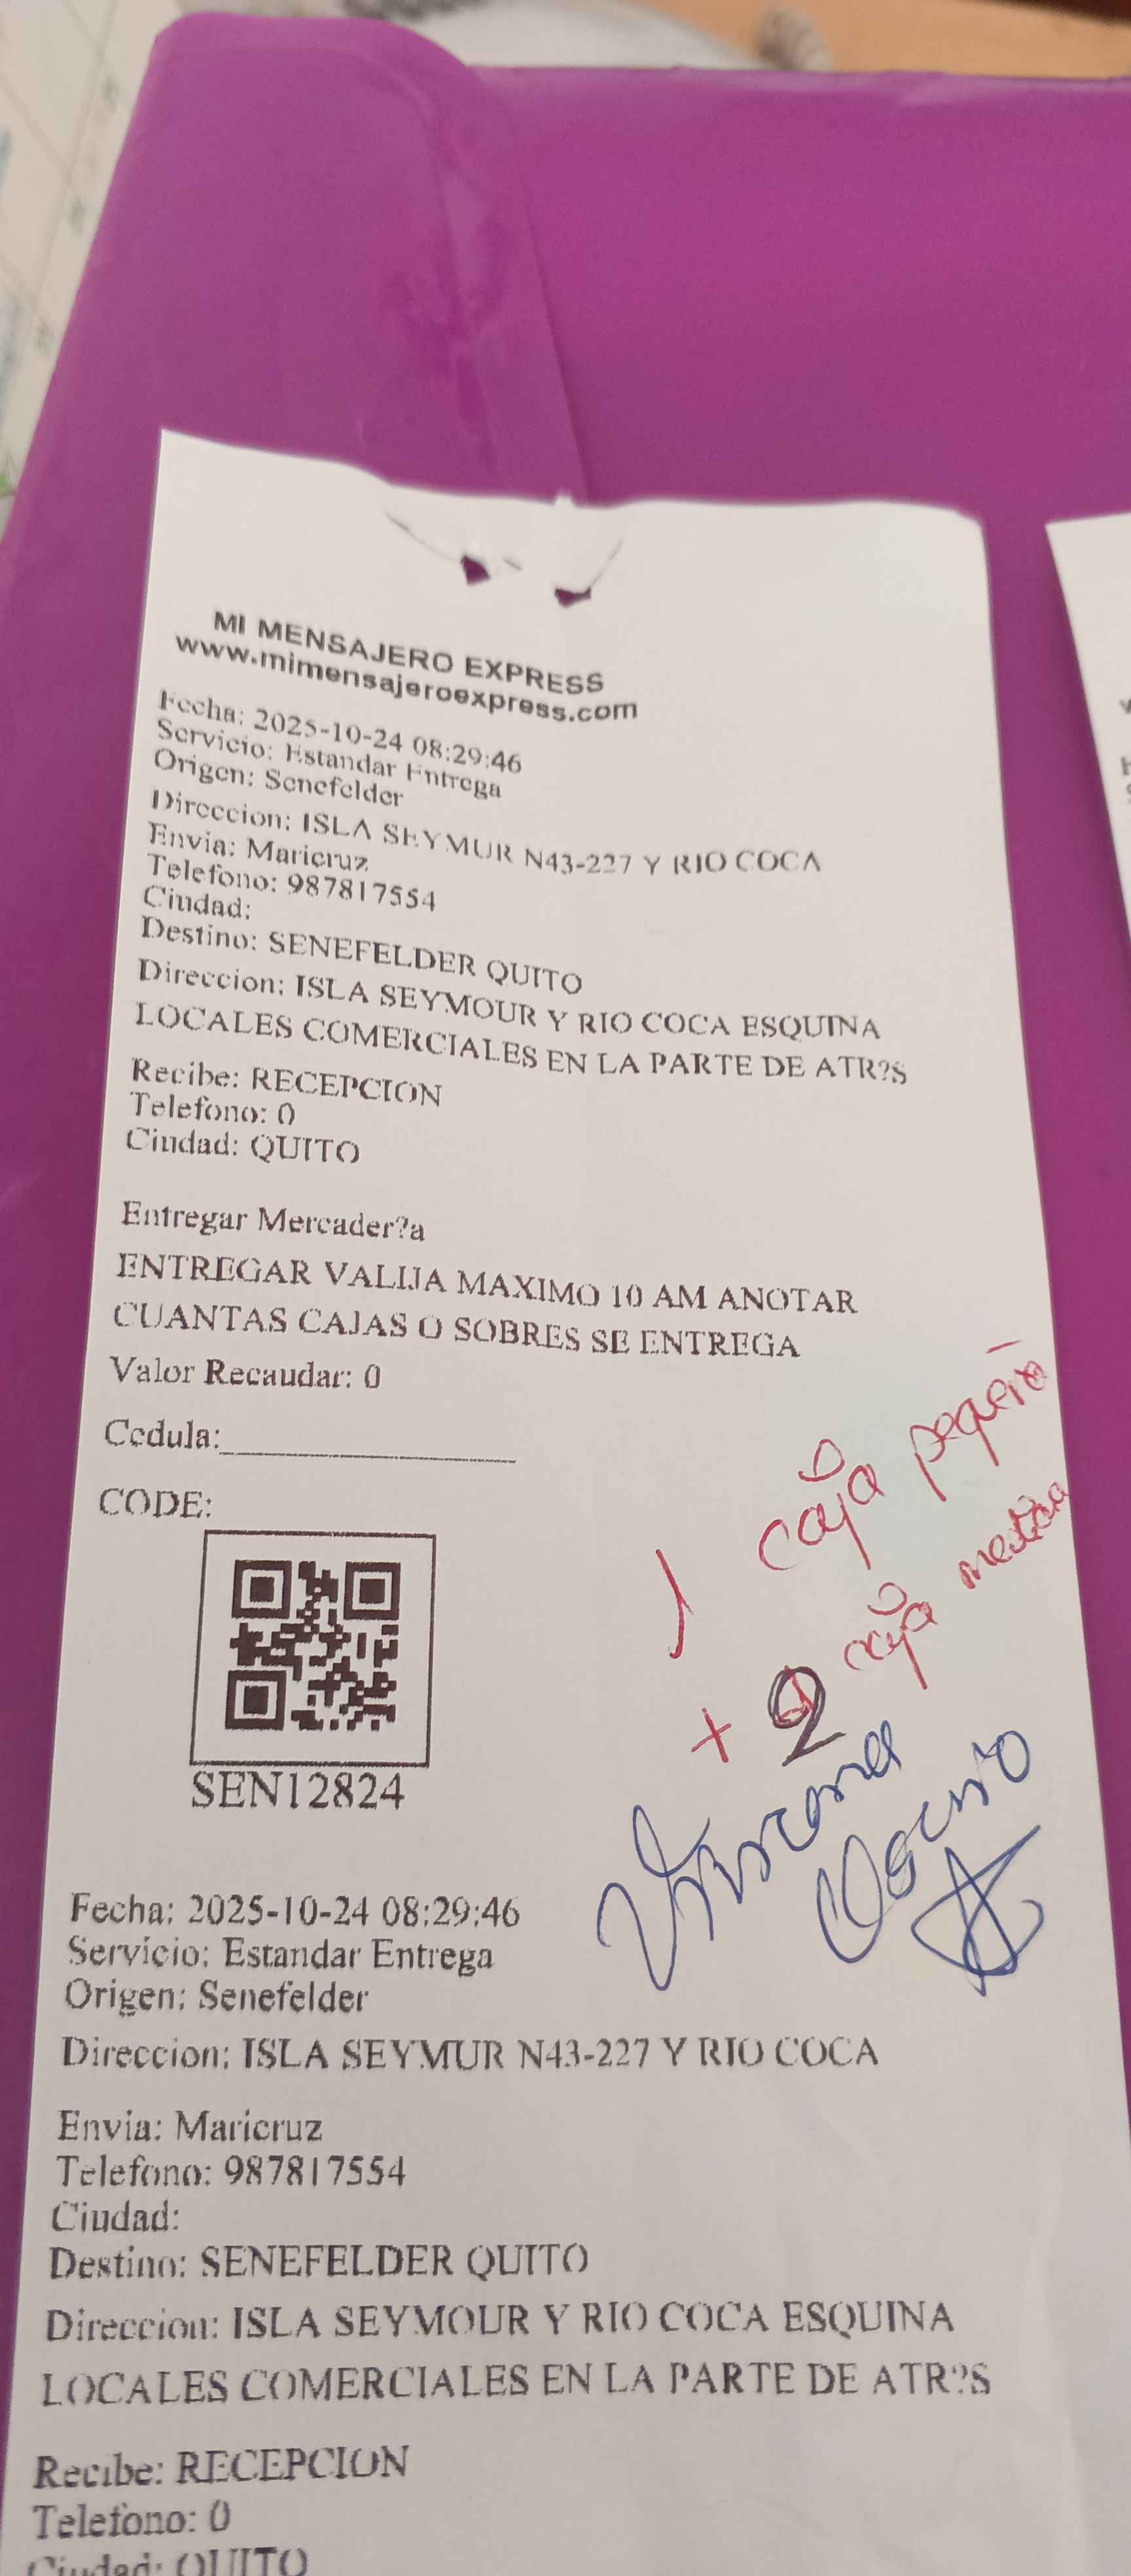 MI MENSAJERO EXPRESS
www.mimensajeroexpress.com
Fecha: 2025-10-24 08:29:46
Servicio: Estandar Entrega
Origen: Senefelder
Direccion: ISLA SEYMUR N43-227 Y RIO COCA
Envia: Maricruz
Telefono: 987817554
Ciudad:
Destino: SENEFELDER QUITO
Direccion: ISLA SEYMOUR Y RIO COCA ESQUINA
LOCALES COMERCIALES EN LA PARTE DE ATR?S
Recibe: RECEPCION
Telefono: 0
Ciudad: QUITO
Entregar Mercader?a
ENTREGAR VALIJA MAXIMO 10 AM ANOTAR
CUANTAS CAJAS O SOBRES SE ENTREGA
Valor Recaudar: 0
Cedula:
CODE:
1 caja pequeña
+ 2 caja
SEN12824
Fecha: 2025-10-24 08:29:46
Servicio: Estandar Entrega
Origen: Senefelder
Direccion: ISLA SEYMUR N43-227 Y RIO COCA
Envia: Maricruz
Telefono: 987817554
Ciudad:
Destino: SENEFELDER QUITO
Direccion: ISLA SEYMOUR Y RIO COCA ESQUINA
LOCALES COMERCIALES EN LA PARTE DE ATR?S
Recibe: RECEPCION
Telefono: 0
Ciudad: QUITO